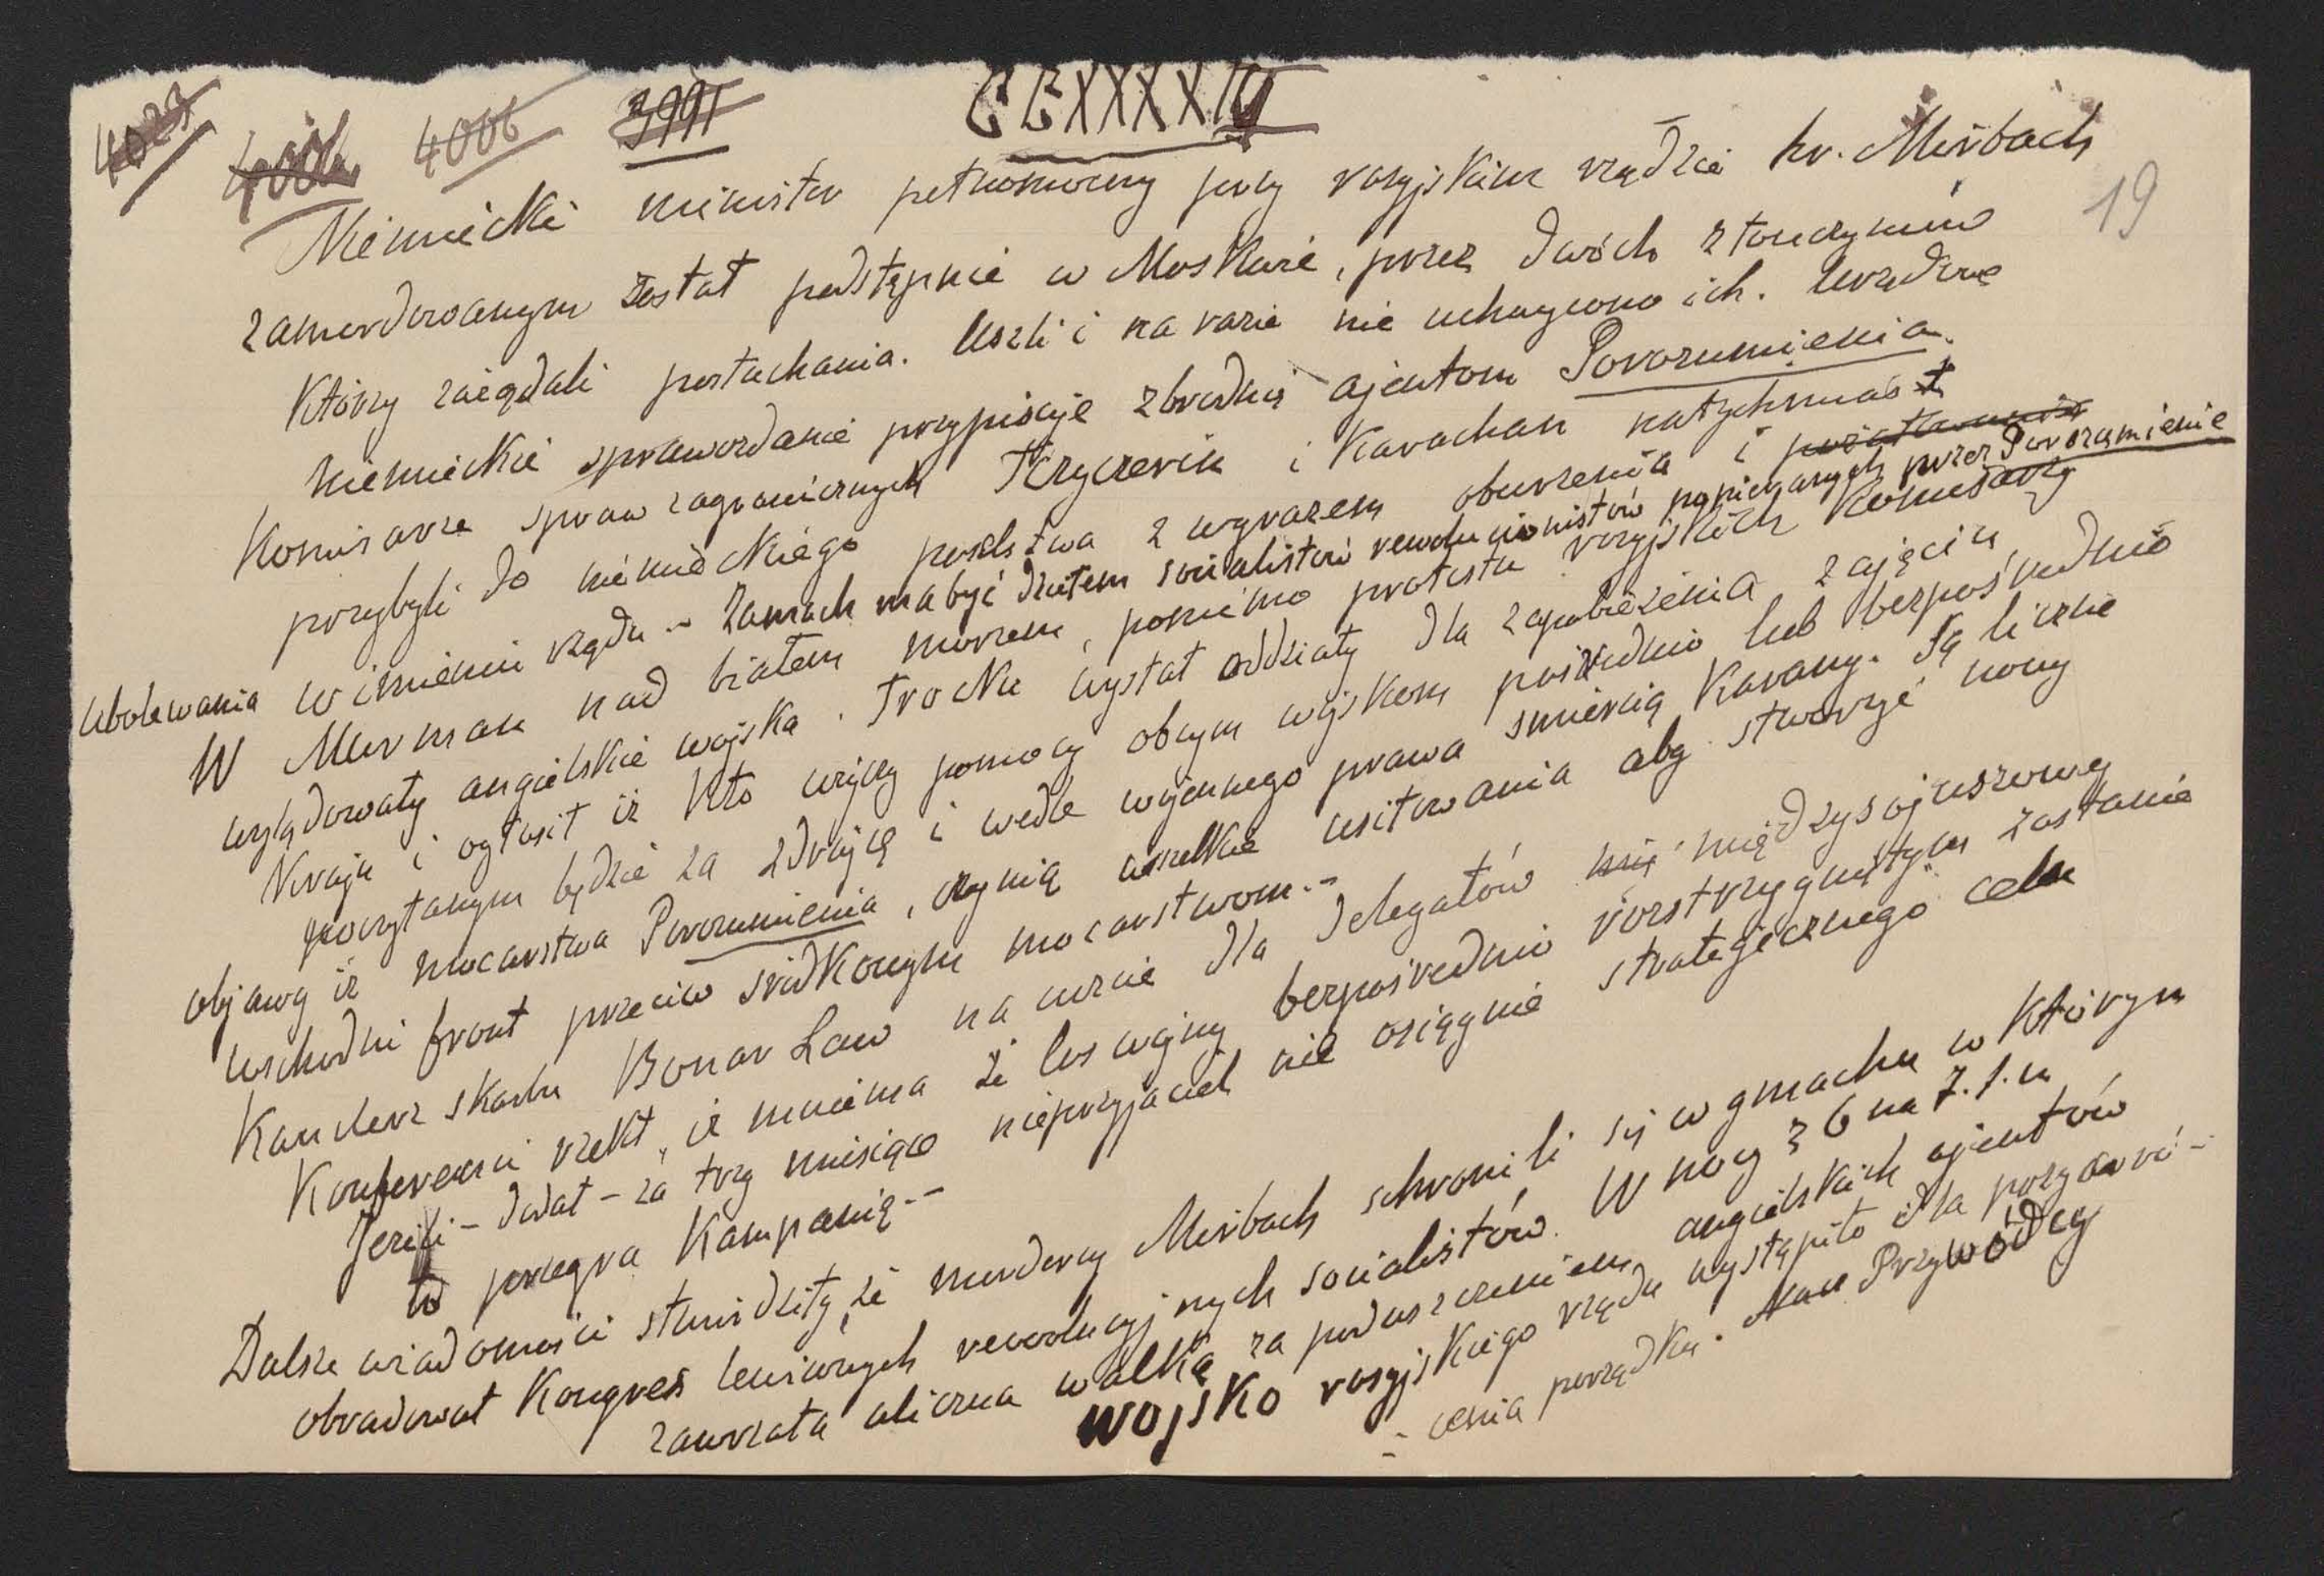 4027 4006 3991 CCXXXXIV
19
Niemiecki minister pełnomocny przy rosyjskim rządzie hr. Mirbach
zamordowanym został podstępnie w Moskwie, przez dwóch złoczyńców
którzy zażądali posłuchania. Uszli i na razie nie uchwycono ich. Urzędowe
niemieckie sprawozdanie przypisuje zbrodnię ajentom Porozumienia.
Komisarze spraw zagranicznych Tczyczerin i Karachan natychmiast
przybyli do niemieckiego poselstwa z wyrazem oburzenia i
ubolewania w imieniu rządu – Zamach ma być dziełem socialistów rewolucionistów popieranych przez Porozumienie
W Murman nad białem morzem, pomimo protestu rosyjskich komisarzy
wylądowały angielskie wojska. Trocki wysłał oddziały dla zapobieżenia zajęciu
Kraju i ogłosił iż kto użyczy pomocy obcym wojskom pośrednio lub bezpośrednio
poczytanym będzie za zdrajcę i wedle wojennego prawa śmiercią karany. Są liczne
objawy iż mocarstwa Porozumienia, czynią wszelkie usiłowania aby stworzyć nowy
wschodni front przeciw środkowym mocarstwom.–
Kanclerz skarbu Bonar Law na uczcie dla delegatów międzysojuszowej
Konferencii rzekł, iż mniema że los wojny bezpośrednio rozstrzygniętym zostanie
Jeżeli – dodał – za trzy miesiące nieprzyjaciel nie osiągnie strategicznego celu
to przegra Kampanię –
Dalsze wiadomości stwierdziły, że mordercy Mirbach schronili się w gmachu w którym
obradował Kongres lewicowych rewolucyjnych socialistów. W nocy z 6 na 7. b. m
zawrzała uliczna walka za poduszczeniem angielskich ajentów
wojsko rosyjskiego rządu wystąpiło dla przywró-
-cenia porządku. Przywódcy